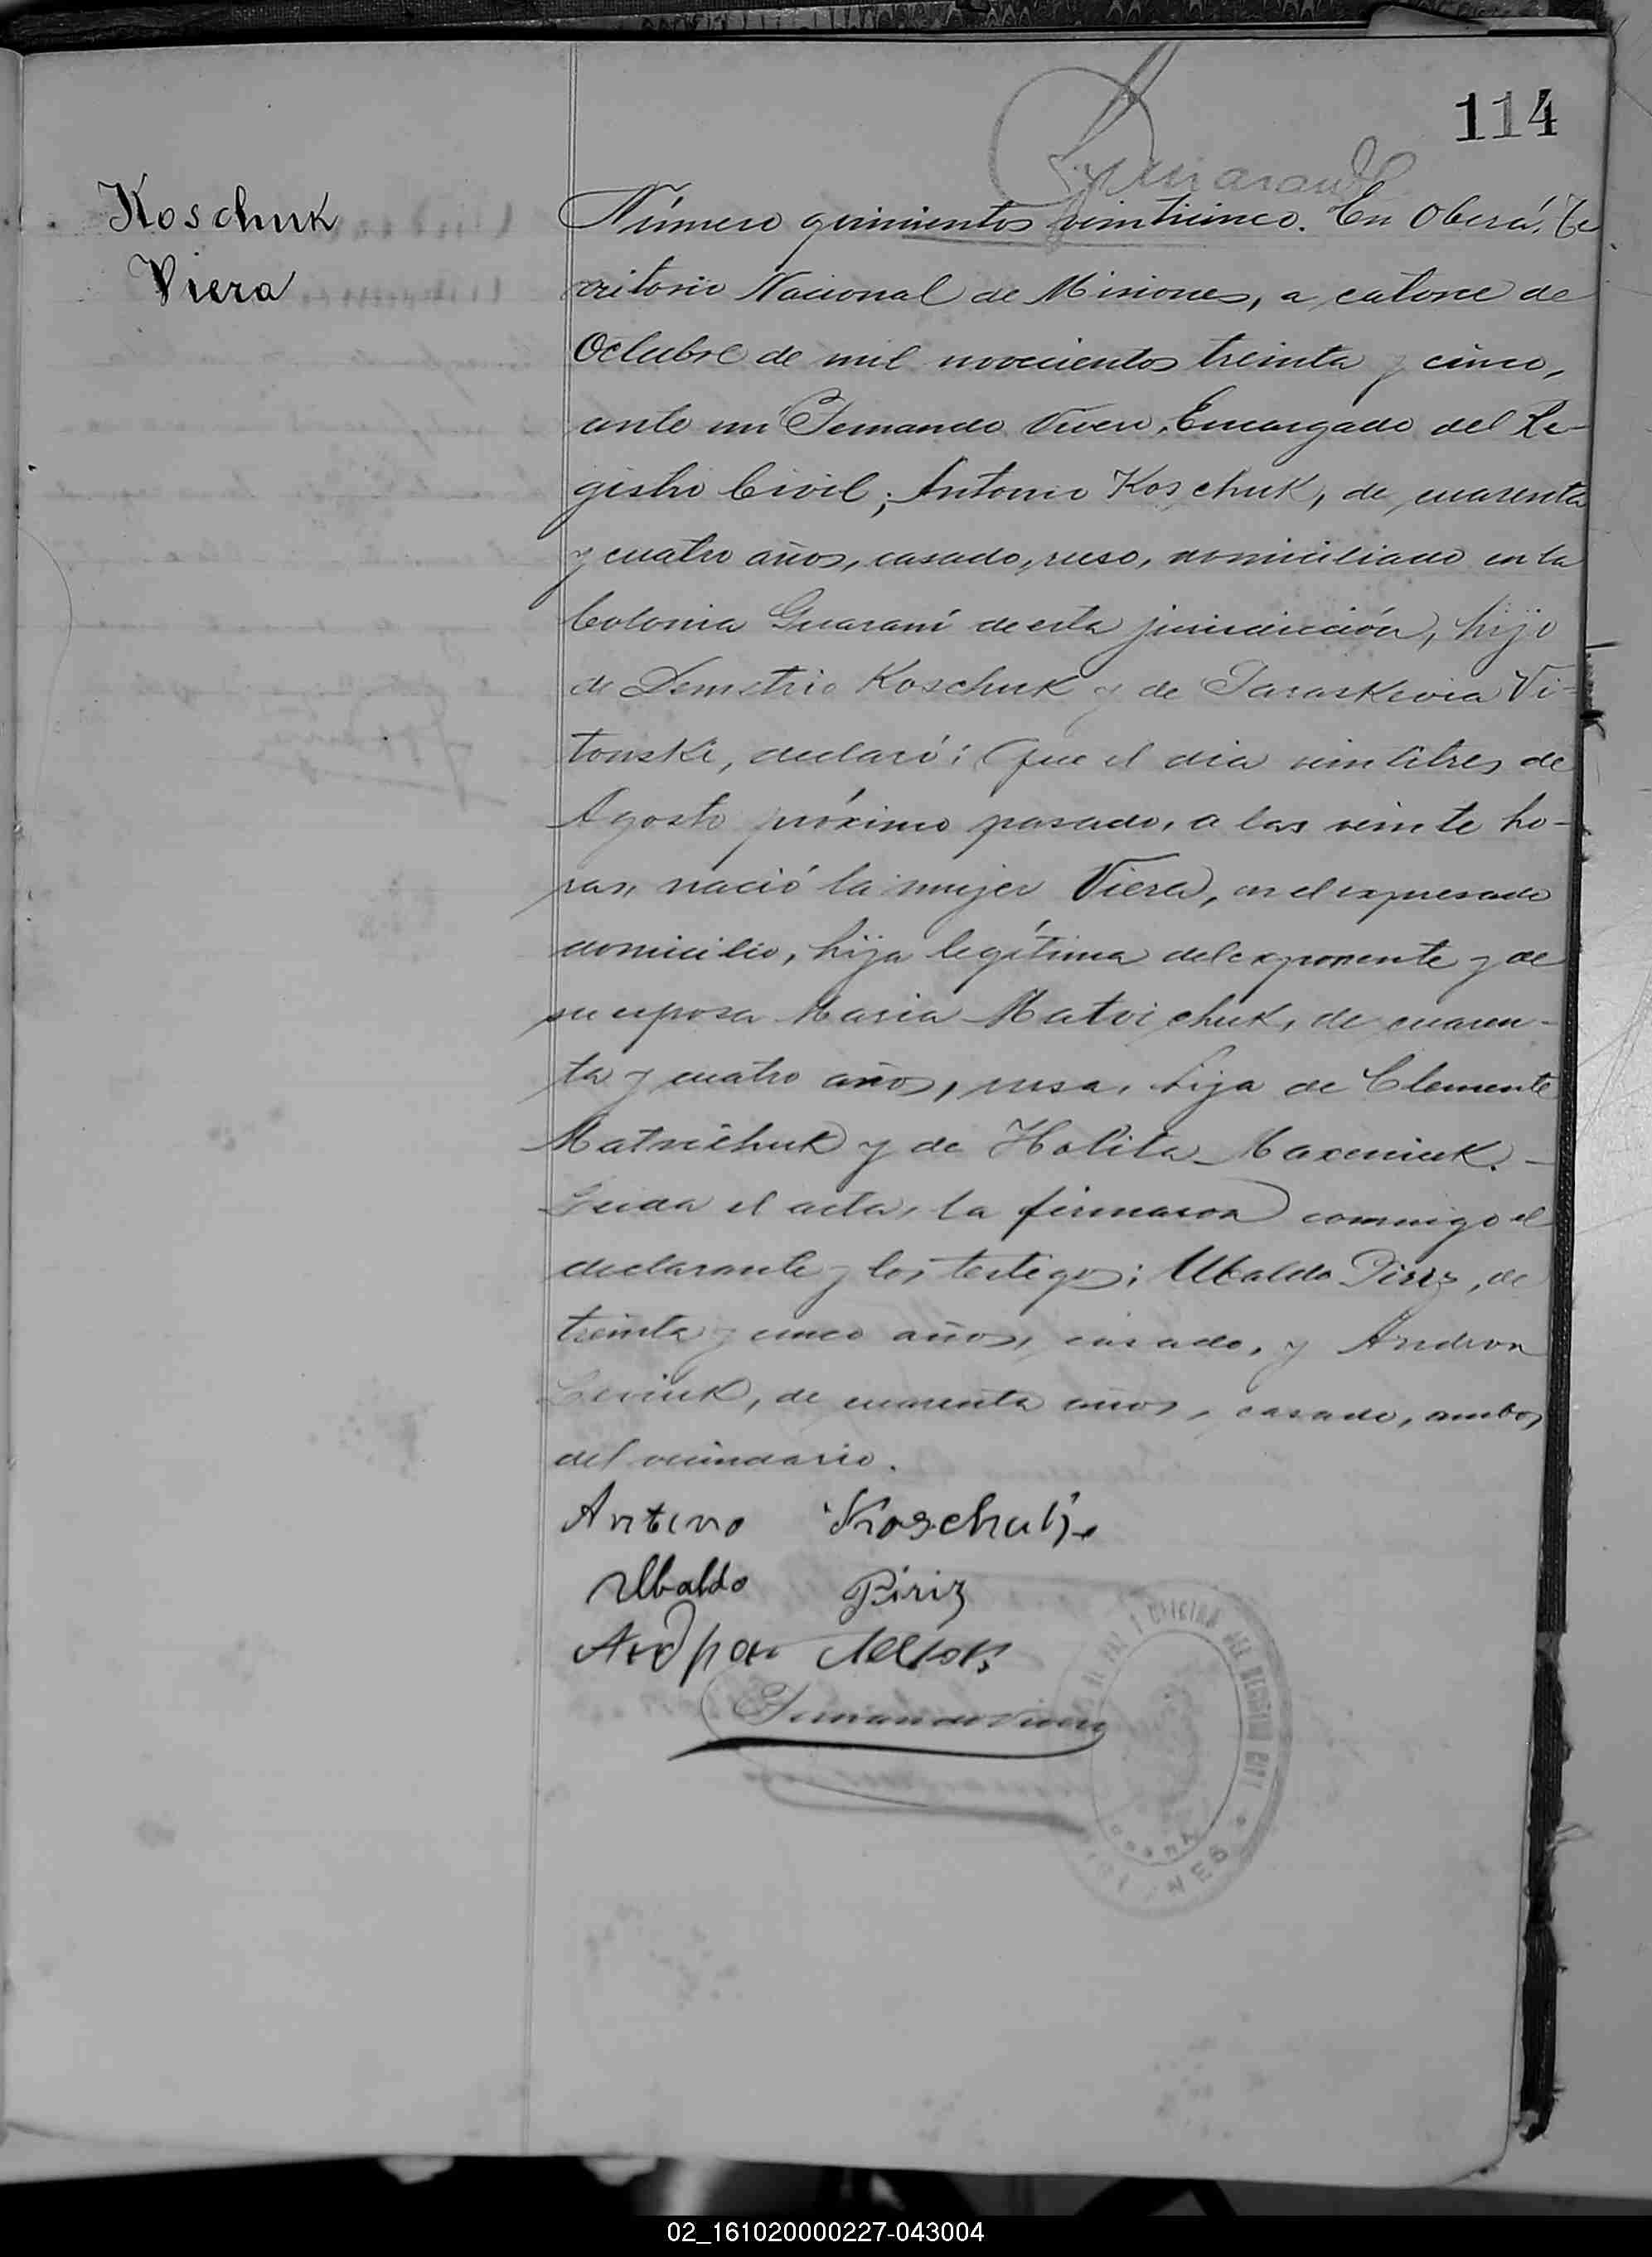 114
Koschuk
Viera
Número quinientos veinticinco. En Oberá, Te
rritorio Nacional de Misiones, a catorce de
Octubre de mil novecientos treinta y cinco,
ante mi Fernando Vivero, Encargado del Re-
gistro Civil; Antonio Koschuk, de cuarenta
y cuatro años, casado, ruso, domiciliado en la
Colonia Guaraní de esta jurisdicción, hijo
de Demetrio Koschuk y de Paraskevia Vi-
tonski, declaró: Que el día veintitres de
Agosto próximo pasado, a las veinte ho-
ras, nació la mujer Viera, en el expresado
domicilio, hija legítima del exponente y de
su esposa Maria Matvichuk, de cuaren-
ta y cuatro años, rusa, hija de Clemente
Matvichuk y de Holita Maxeniuk.
Leida el acta, la firmaron conmigo el
declarante y los testigos: Ubaldo Piriz, de
treinta y cinco años, casado, y Andron
Leviuk, de cuarenta años, casado, ambos
del vecindario.
Antono Koschuk
Ubaldo Piriz
Андрон
Fernando Vivero
OFICINA DEL REGISTRO CIVI
02_161020000227-043004